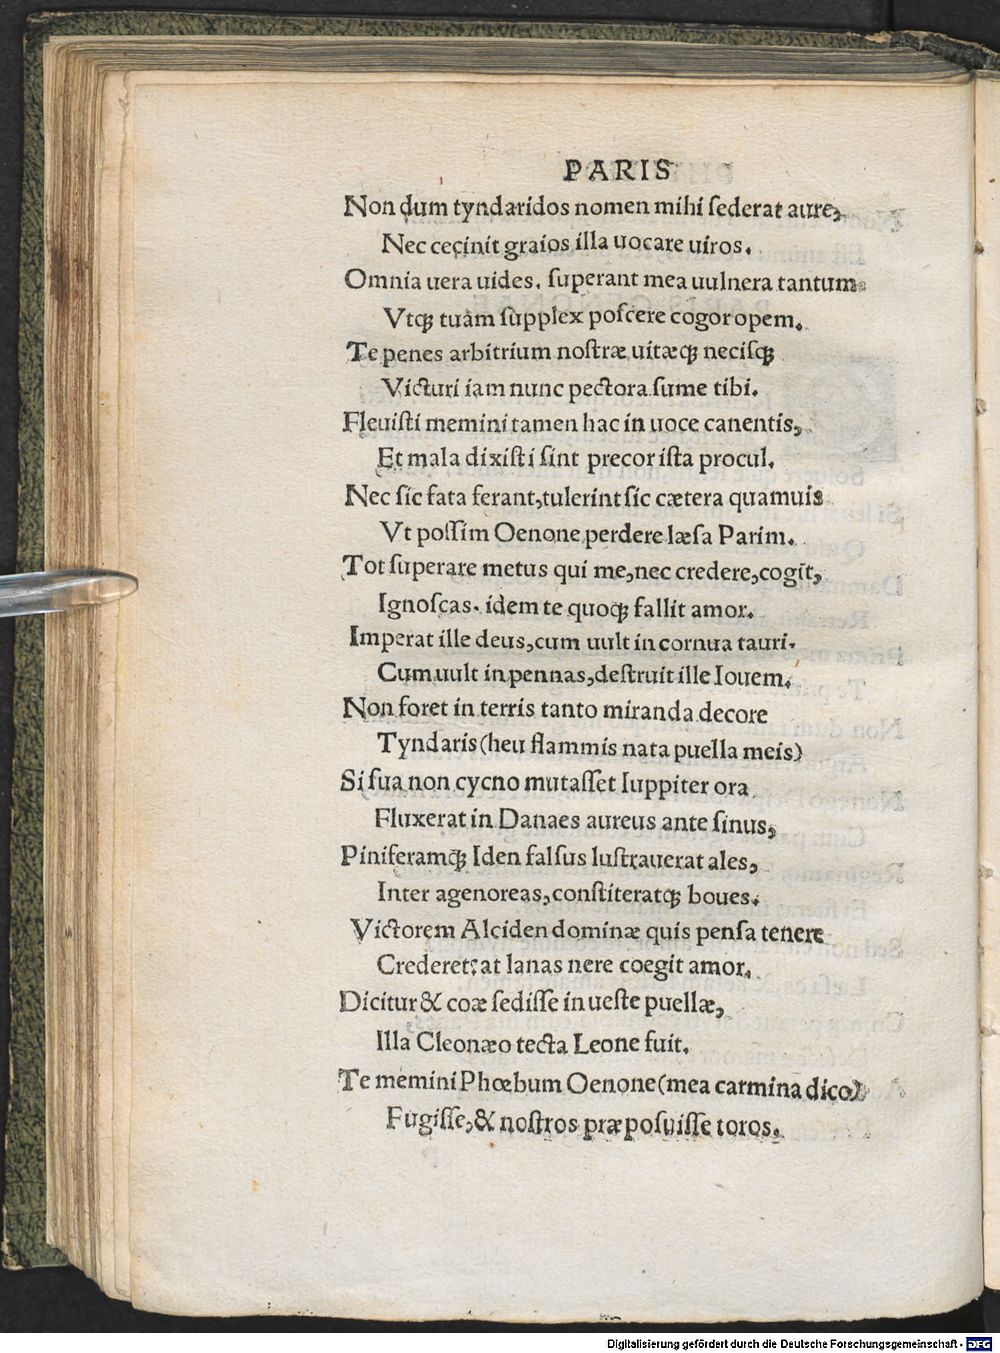 PARIS
Non dum tyndaridos nomen mihi ſederat aure,
Nec cecinit graios illa uocare uiros.
Omnia uera uides. ſuperant mea uulnera tantum
Vtqꝫ tuam ſupplex poſcere cogor opem.
Te penes arbitrium noſtræ uitæqꝫ neciſqꝫ
Victuri iam nunc pectora ſume tibi.
Fleuiſti memini tamen hac in uoce canentis,
Et mala dixiſti ſint precor iſta procul.
Nec ſic fata ferant, tulerint ſic cætera quamuis
Vt poſſim Oenone perdere læſa Parim.
Tot ſuperare metus qui me, nec credere, cogit,
Ignoſcas. idem te quoqꝫ fallit amor.
Imperat ille deus, cum uult in cornua tauri.
Cum uult in pennas, deſtruit ille Iouem.
Non foret in terris tanto miranda decore
Tyndaris (heu flammis nata puella meis)
Si ſua non cycno mutaſſet Iuppiter ora
Fluxerat in Danaes aureus ante ſinus,
Piniferamqꝫ Iden falſus luſtrauerat ales,
Inter agenoreas, conſtiteratqꝫ boues.
Victorem Alciden dominæ quis penſa tenere
Crederet? at lanas nere coegit amor.
Dicitur & coæ ſediſſe in ueſte puellæ,
Illa Cleonæo tecta Leone fuit.
Te memini Phœbum Oenone (mea carmina dico)
Fugiſſe, & noſtros præpoſuiſſe toros.
Digitalisierung gefördert durch die Deutsche Forschungsgemeinschaft - DFG